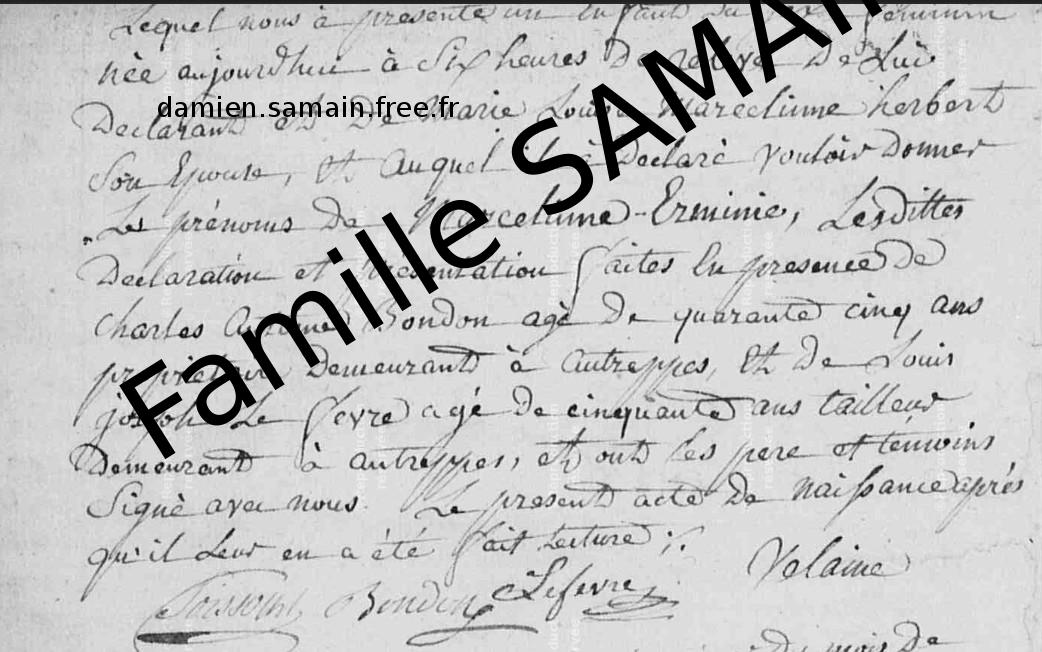 Lequel nous à presenté un Enfant du Sexe feminin
née aujourdhui à Six heures De relevé De Lui
Declarant et De Marie Louise Marcelinne herbert
Son Epouse, Et Auquel il à Declaré vouloir Donner
Les prénoms de Marcelinne-Erminie, Lesdittes
Declaration et Présentation faites En presence de
Charles Antoine Bondon agé De quarante cinq ans
propriétaire Demeurant à Autreppes, Et De Louis
joseph Le fevre agé de cinquante ans tailleur
Demeurant à autreppes, et ont les pere et témoins
Signé avec nous. Le present acte De naissance après
qu'il Leur en a été fait Lecture ;.
Velaine
Bondon Lefevre
mois De
damien.samain.free.fr
Famille SAMAIN